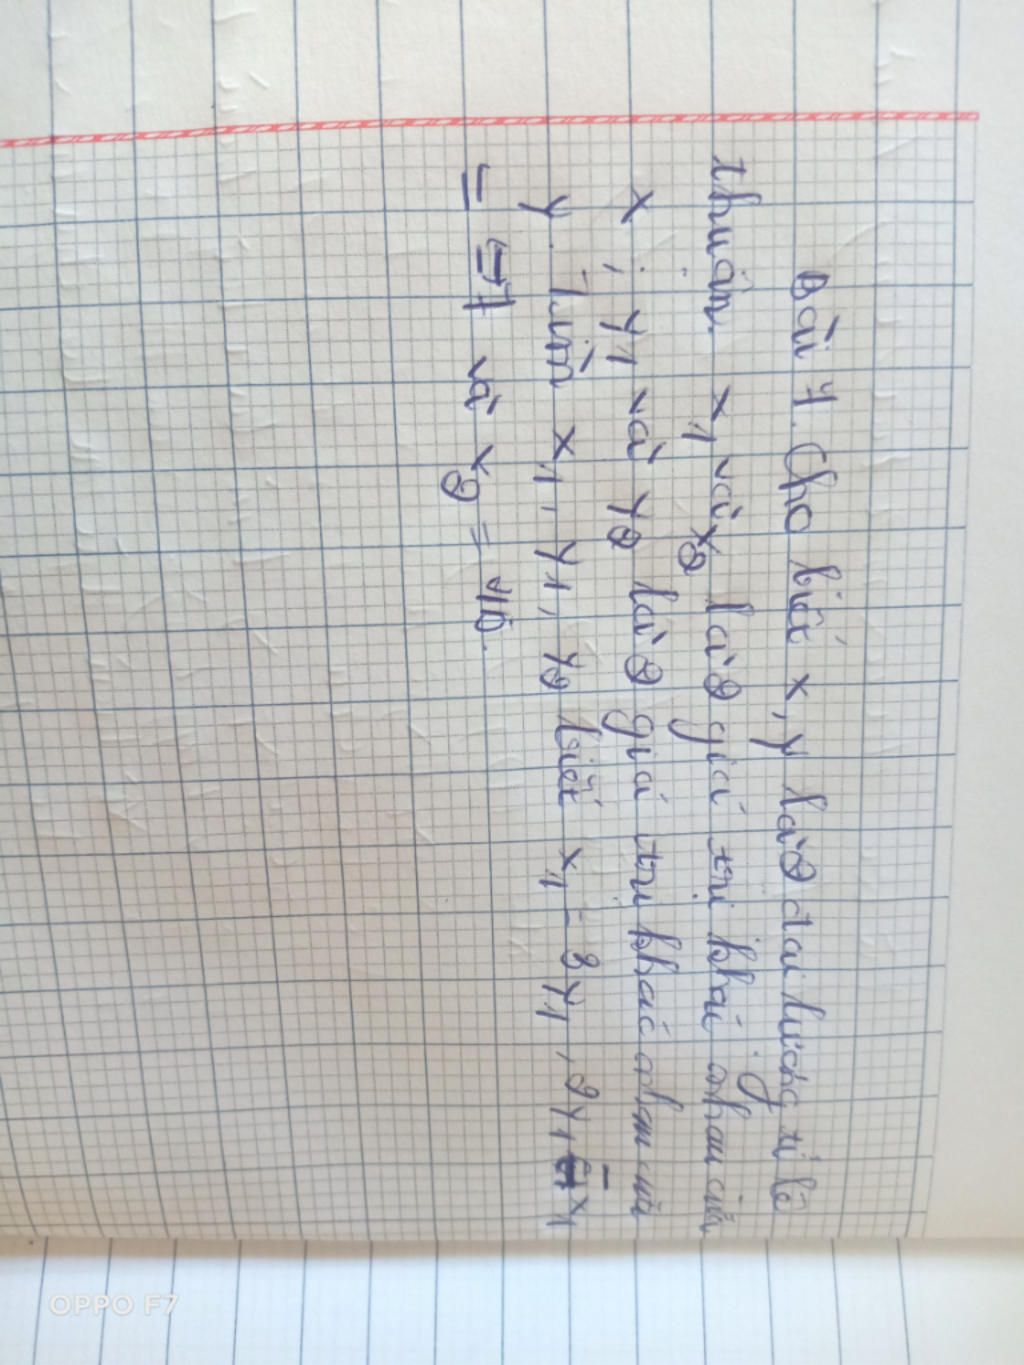 Bài 1. Cho biết x, y là 2 đại lượng tỉ lệ
thuận. x1 và x2 là 2 giá trị khác nhau của
x ; y1 và y2 là 2 giá trị khác nhau của
y. Tìm x1, y1, y2 biết x1 = 3y1, 2y1 - x1
= -7 và x2 =
OPPO F7